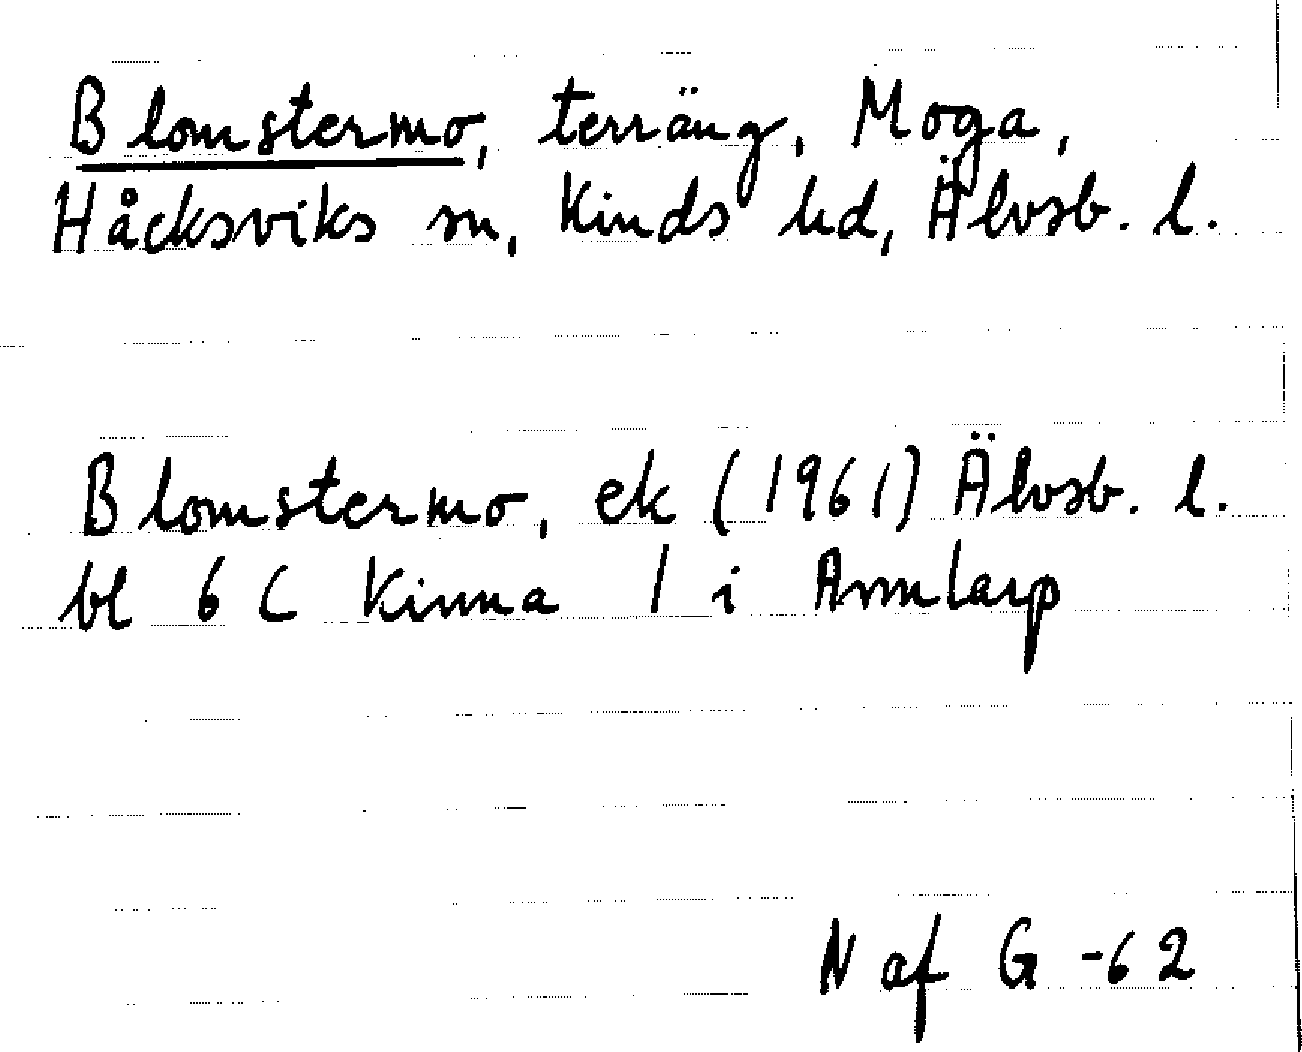 Blomstermo, terräng, Moga,
Håcksviks sn, Kinds hd, Älvsb. l.
Blomstermo, ek (1961) Älvsb. l.
bl 6 C Kinna / i Arnlarp
N af G -62